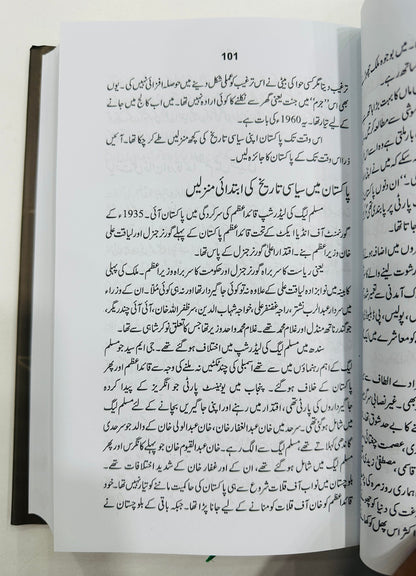 101
ترغیب دیتا مگر کسی حوا کی بیٹی نے اس ترغیب کو عملی شکل دینے میں حوصلہ افزائی نہیں کی۔ یوں
بھی اس "جرم" میں جنت یعنی گھر سے نکلنے کا کوئی ارادہ نہیں تھا۔ میں اب کالج میں جانے
کے لیے تیار تھا۔ یہ 1960ء کی بات ہے۔
اس وقت تک پاکستان اپنی سیاسی تاریخ کی کچھ منزلیں طے کر چکا تھا۔ آئیں
ذرا اس وقت تک کے پاکستان کا جائزہ لیں۔
پاکستان میں سیاسی تاریخ کی ابتدائی منزلیں
مسلم لیگ کی لیڈرشپ قائداعظم کی سرکردگی میں پاکستان آئی۔ 1935ء کے
گورنمنٹ آف انڈیا ایکٹ کے تحت قائداعظم پاکستان کے پہلے گورنر جنرل اور لیاقت علی
خان وزیراعظم بنے۔ اقتدار اعلیٰ گورنر جنرل کے پاس تھا۔
یعنی ریاست کا سربراہ گورنر جنرل اور حکومت کا سربراہ وزیراعظم۔ ملک کی پہلی
کابینہ میں نوابزادہ لیاقت علی کے علاوہ نہ تو کوئی جاگیردار تھا اور نہ ہی کوئی مُلّا۔ ان کے وزراء
میں سردار عبدالرب نشتر، راجہ غضنفر علی، خواجہ شہاب الدین، سر ظفر اللہ خان، آئی آئی چندریگر،
جوگندر ناتھ منڈل اور غلام محمد تھے۔ غلام محمد واحد وزیر تھا جس کا تعلق نوکر شاہی سے تھا۔
سندھ میں مسلم لیگ کی لیڈرشپ میں اختلاف ہو گئے تھے۔ جی ایم سید جو مسلم
لیگ کے اہم رہنماؤں میں سے تھے اسمبلی کی چند ٹکٹیں نہ ملنے کی وجہ سے قائداعظم اور پھر
پاکستان کے خلاف ہو گئے۔ پنجاب میں یونینسٹ پارٹی جو انگریز کے پیدا کردہ
جاگیرداروں کی پارٹی تھی، اقتدار میں رہنے اور اپنی جاگیریں بچانے کے لئے مسلم لیگ
میں شامل ہو گئی تھی۔ سرحد میں خان عبدالغفار خان، خان عبدالولی خان کے والد جو سرحدی
گاندھی کہلاتے تھے، مسلم لیگ سے الگ رہے۔ خان عبدالقیوم خان جو پہلے کانگرس اور پھر
مسلم لیگ میں شامل ہو گئے تھے، ان کے اور غفار خان کے شدید اختلافات تھے۔
بلوچستان میں نواب آف قلات شروع سے ہی پاکستان کی حاکمیت ماننے کو تیار نہیں تھا۔ خود
قائداعظم کو خان آف قلات کو منانے کے لیے جانا پڑا تھا۔ جبکہ باقی کے بلوچستان نے